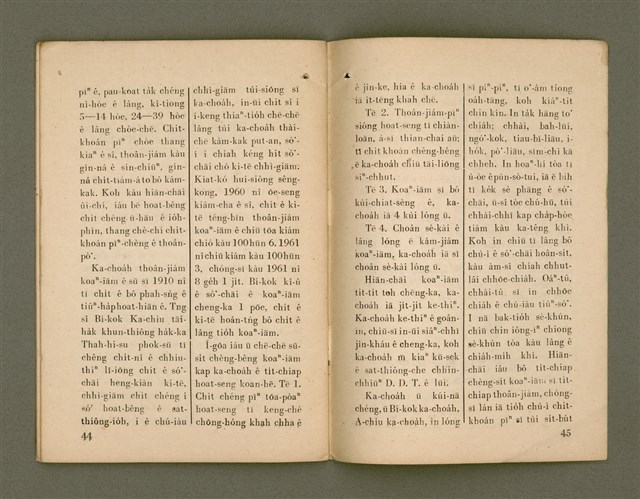 pīⁿ ê, pau-koat ta̍k chéng
nî-hòe ê lâng, kî-tiong
5—14 hòe, 24—39 hòe
ê lâng chòe-chē. Chit-
khoán pīⁿ chòe thang
kiaⁿ ê sī, thoân-jiám kàu
gín-ná ê sin-chiūⁿ, gín-
ná chit-tiám-á to bô kám-
kak. Koh kàu hiān-chāi
ûi-chí, iáu bē hoat-bêng
chit chéng ū-hāu ê io̍h-
phín, thang chè-chí chit-
khoán pīⁿ-chèng ê thoân-
pò͘.
Ka-choa̍h thoân-jiám
koaⁿ-iām ê sū sī 1910 nî
tī chit ê bô phah-sǹg ê
tiûⁿ-ha̍p hoat-hiān ê. Tng
sî Bí-kok Ka-chiu tāi-
ha̍k khun-thiông ha̍k-ka
Thah-hi-su phok-sū tī
chêng chit-nî ê chhiu-
thiⁿ lī-iōng chit ê só͘-
chāi heng-kiàn kî-tē,
chhì-giām chit chéng í
só͘ hoat-bêng ê sat-
thiông-io̍h, i ê chú-iàu
44
chhì-giām tùi-siōng sī
ka-choa̍h, in-ūi chit sî i
í-keng thiaⁿ-tio̍h chē-chē
lâng tùi ka-choa̍h thài-
chē kám-kak put-an, só͘-
í i chiah kéng hit só͘-
chāi chò kî-tē chhì-giām.
Kiat-kó hui-siông sêng-
kong, 1960 nî ōe-seng
kiám-cha ê sî, chit ê kî-
tē téng-bīn thoân-jiám
koaⁿ-iām ê chiū tōa kiám
chió kàu 100 hūn 6. 1961
nî chiū kiám kàu 100 hūn
3, chóng-sī kàu 1961 nî
8 ge̍h 1 ji̍t. Bí-kok kî-û
ê só͘-chāi ê koaⁿ-iām
cheng-ka 1 pōe, chit ê
kî-tē hoán-tńg bô chit ê
lâng tio̍h koaⁿ-iām.
Í-gōa iáu ū chē-chē sū-
si̍t chèng-bêng koaⁿ-iām
kap ka-choa̍h ê ti̍t-chiap
hoat-seng koan-hē. Tē 1.
Chit chéng pīⁿ tōa-pòaⁿ
hoat-seng tī keng-chè
chōng-hóng khah chha ê
ê jîn-ke, hia ê ka-choa̍h
iā it-tēng khah chē.
Tē 2. Thoân-jiám-pīⁿ
siông hoat-seng tī chiàn-
loān, á-sī thian-chai āu;
tī chit khoán chêng-hêng
ê ka-choa̍h chiū tāi-liōng
siⁿ-chhut.
Tē 3. Koaⁿ-iām sī bô
kùi-chiat-sèng ê, ka-
choa̍h iā 4 kùi lóng ū.
Tē 4. Choân sè-kài ê
lâng lóng ē kám-jiám
koaⁿ-iām, ka-choa̍h iā sī
choân sè-kài lóng ū.
Hiān-chāi koaⁿ-iām
ti̍t-ti̍t teh chêng-ka, ka-
choa̍h iā ji̍t-ji̍t ke-thiⁿ.
Ka-choa̍h ke-thiⁿ ê goân-
in, chiū-sī in-ūi siáⁿ-chhī
jîn-kháu ê cheng-ka, koh
ka-choa̍h m̄ kiaⁿ kū-sek
ê sat-thiông-che chhin-
chhiūⁿ D. D. T. ê lūi.
Ka-choa̍h ū kúi-nā
chéng, ū Bí-kok ka-choa̍h,
A-chiu ka-choa̍h, in lóng
sī pīⁿ-pîⁿ, tī o͘-àm tiong
oa̍h-tāng, koh kiâⁿ-tit
chin kín. In ta̍k hāng to͘
chia̍h; chhài, bah-lūi,
ngó͘-kok, tiau-bî-liāu, i-
ho̍k, pò͘-liāu, sīm-chì kā
chheh. In hoaⁿ-hí tòa tī
ù-òe épùn-só͘-tui, iā ē bih
tī kè-sè phāng ê só͘-
chāi, ū-sî tòe chú-hū, tùi
chhài-chhī kap cha̍p-hòe
tiàm kàu ka-têng khì.
Koh in chiū tī lâng bô
chú-ì ê só͘-chāi hoân-sit,
kàu àm-sî chiah chhut-
lâi chhōe-chia̍h. Oáⁿ-tû,
chhài-tû sī in chhōe
chia̍h ê chú-iàu tiûⁿ-só͘.
I nā bak-tio̍h sè-khún,
chiū chin iông-ī chiong
sè-khún tòa kàu lâng ê
chia̍h-mi̍h khì. Hiān-
chāi iáu bô ti̍t-chiap
chèng-si̍t koaⁿ-iām sī ti̍t-
chiap thoân-jiám, chóng-
sī lán iā tio̍h chù-ì chit-
khoán pīⁿ sī tùi si̍t-bu̍t
45